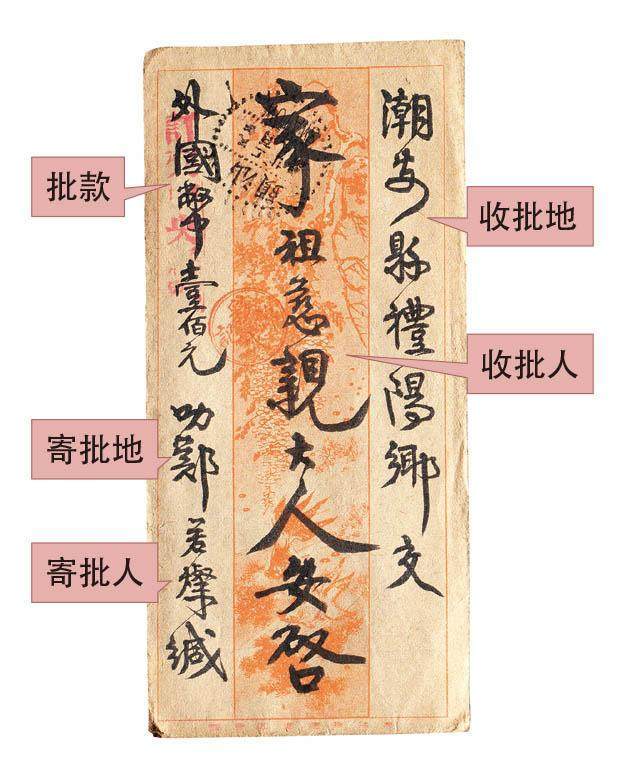 潮安縣禮陽鄉交
家祖慈親大人安啓
外國幣壹佰元 叻鄭若燦緘
收批地
收批人
批款
寄批地
寄批人